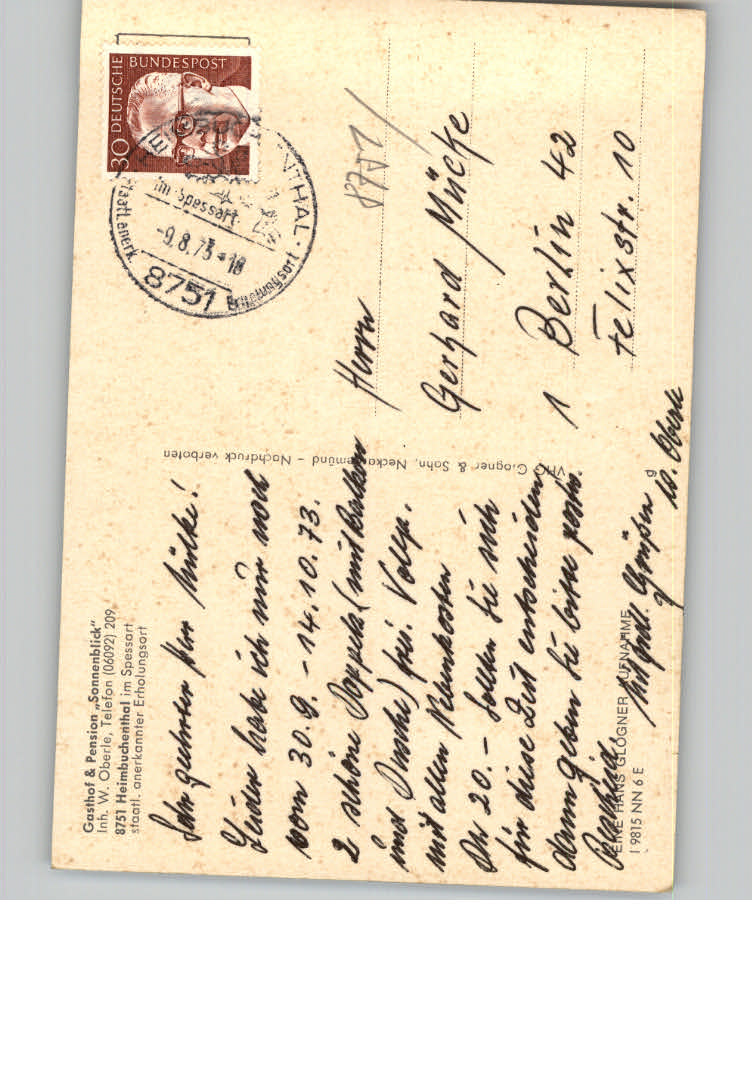 Gasthof & Pension „Sonnenblick"
Inh. W. Oberle, Telefon (06092) 209
8751 Heimbuchenthal im Spessart
staatl. anerkannter Erholungsort
Sehr geehrter Herr Mücke!
Leider habe ich nur noch
vom 30.9. - 14.10.73.
2 schöne Doppelz. (mit Balkon
und Dusche) frei. Vollp.
mit allen Nebenkosten
DM 20.- Sollten Sie sich
für diese Zeit entscheiden,
dann geben Sie bitte
Bescheid.
Mit frdl. Grüßen
W. Oberle
EINE HANS GLOGNER AUFNAHME
I 9815 NN 6 E
VHG Glogner & Sohn, Neckargemünd – Nachdruck verboten
30 DEUTSCHE BUNDESPOST
im Spessart
-9.8.73-18
8751
Staatl. anerk.
8751/
Herrn
Gerhard Mücke
1 Berlin 42
Felixstr. 10